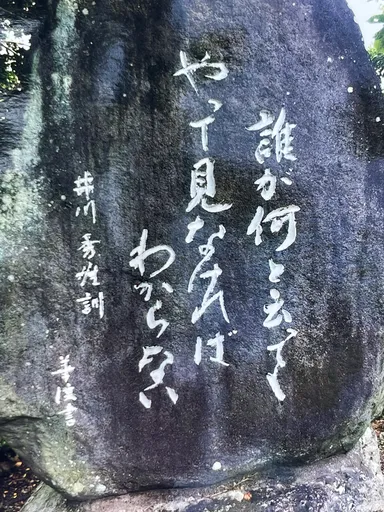 誰が何と云っても
やって見なければ
わからない
井川 秀雄訓
書